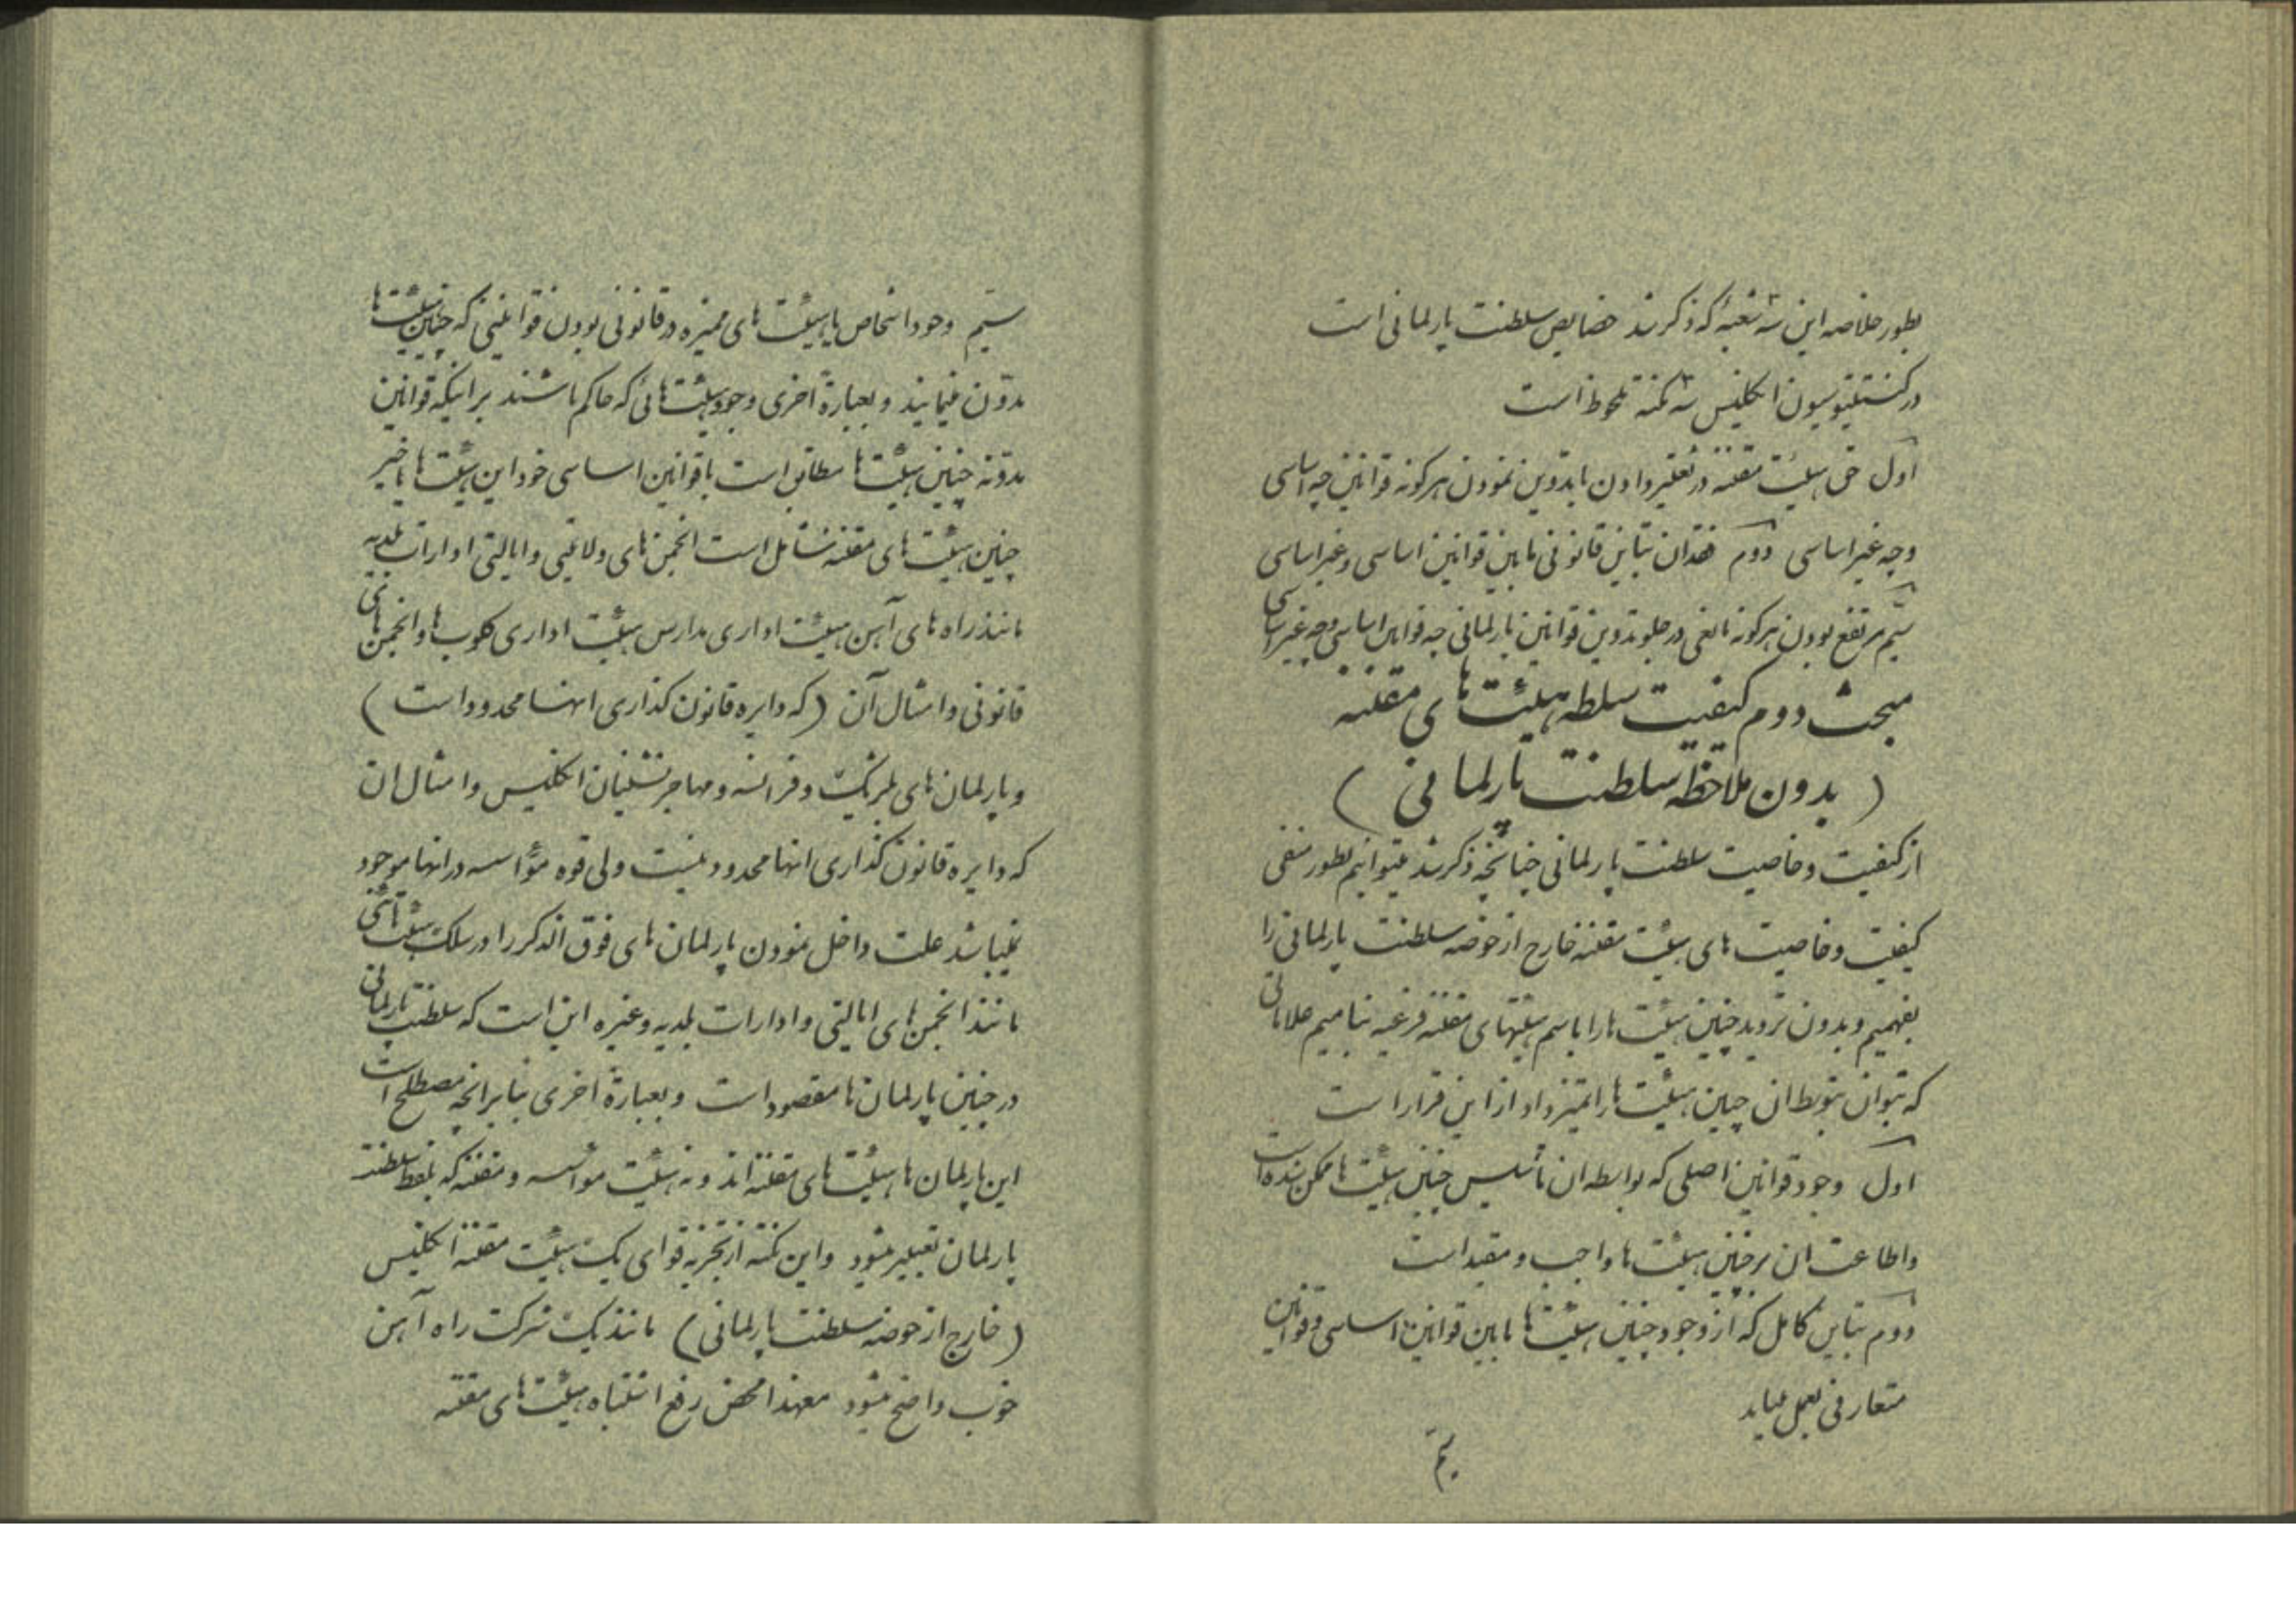 بطور خلاصه این سه شعبهٔ که ذکر شد خصایص سلطنت پارلمانی است
در کنستیتیوسیون انگلیس سه نکته ملحوظ است
اول حق هیئت مقننه در تغییر دادن یا تدوین نمودن هرگونه قوانین چه اساسی
و چه غیر اساسی دوم فقدان تباین قانونی مابین قوانین اساسی و غیر اساسی
سیم مرتفع بودن هرگونه مانعی در جلو تدوین قوانین پارلمانی چه قوانین اساسی و چه غیر اساسی
مبحث دوم کیفیت سلطه هیئت های مقننه
( بدون ملاحظه سلطنت پارلمانی )
از کیفیت و خاصیت سلطنت پارلمانی چنانچه ذکر شد میتوانیم بطور منفی
کیفیت و خاصیت های هیئت مقننه خارج از حوضه سلطنت پارلمانی را
بفهمیم و بدون تردید چنین هیئت ها را باسم هیئتهای مقننه فرعیه بنامیم علاماتی
که بتوان بتوسط ان چنین هیئت ها را تمیز داد از این قرار است
اول وجود قوانین اصلی که بواسطه ان تأسیس چنین هیئت ها ممکن شده است
و اطاعت ان بر چنین هیئت ها واجب و مقید است
دوم تباین کامل که از وجود چنین هیئت ها مابین قوانین اساسی و قوانین
متعارفی بعمل میاید
سیم
سیم وجود اشخاص یا هیئت های ممیزه در قانونی بودن قوانینی که چنین هیئت ها
مدون مینمایند و بعبارة اخری وجود هیئت هائی که حاکم باشند بر اینکه قوانین
مدونه چنین هیئت ها مطابق است با قوانین اساسی خود این هیئت ها یا خیر
چنین هیئت های مقننه شامل است انجمن های ولایتی و ایالتی ادارات بلدیه
مانند راه های آهن هیئت اداری مدارس هیئت اداری کلوب ها و انجمن های
قانونی و امثال آن ( که دایره قانون گذاری انها محدود است )
و پارلمان های بلژیک و فرانسه و مهاجر نشینان انگلیس و امثال ان
که دایره قانون گذاری انها محدود نیست ولی قوه مؤاسسه در انها موجود
نمیباشد علت داخل نمودن پارلمان های فوق الذکر را در سلک هیئت هائی
مانند انجمن های ایالتی و ادارات بلدیه و غیره این است که سلطنت پارلمانی
در چنین پارلمان ها مقصود است و بعبارة اخری بنابر انچه مصطلح است
این پارلمان ها هیئت های مقننه اند و نه هیئت مواسسه و مقننه که بلفظ سلطنت
پارلمان تعبیر میشود و این نکته از تجزیه قوای یک هیئت مقننه انگلیس
( خارج از حوضه سلطنت پارلمانی ) مانند یک شرکت راه آهن
خوب واضح میشود معهذا محض رفع اشتباه هیئت های مقننه